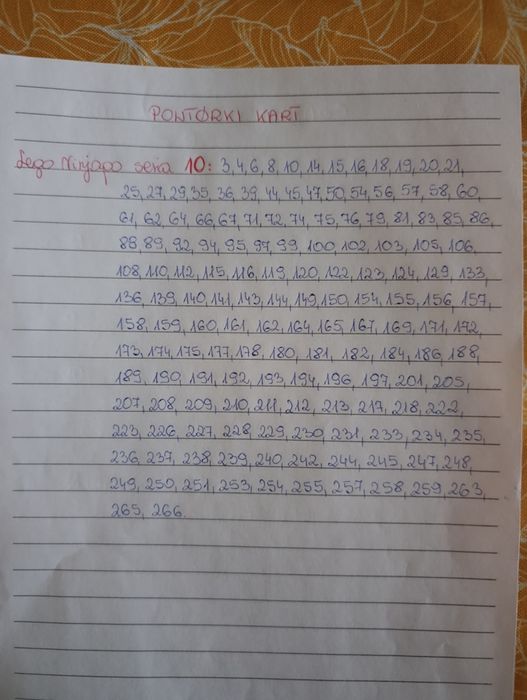 PONTÓRKI KART
Lego Ninjago seria 10: 3, 4, 6, 8, 10, 14, 15, 16, 18, 19, 20, 21,
25, 27, 29, 35, 36, 39, 44, 45, 47, 50, 54, 56, 57, 58, 60,
61, 62, 64, 66, 67, 71, 72, 74, 75, 76, 79, 81, 83, 85, 86,
88, 89, 92, 94, 95, 97, 99, 100, 102, 103, 105, 106,
108, 110, 112, 115, 116, 119, 120, 122, 123, 124, 129, 133,
136, 139, 140, 141, 143, 144, 149, 150, 154, 155, 156, 157,
158, 159, 160, 161, 162, 164, 165, 167, 169, 171, 172,
173, 174, 175, 177, 178, 180, 181, 182, 184, 186, 188,
189, 190, 191, 192, 193, 194, 196, 197, 201, 205,
207, 208, 209, 210, 211, 212, 213, 217, 218, 222,
223, 226, 227, 228, 229, 230, 231, 233, 234, 235,
236, 237, 238, 239, 240, 242, 244, 245, 247, 248,
249, 250, 251, 253, 254, 255, 257, 258, 259, 263,
265, 266.